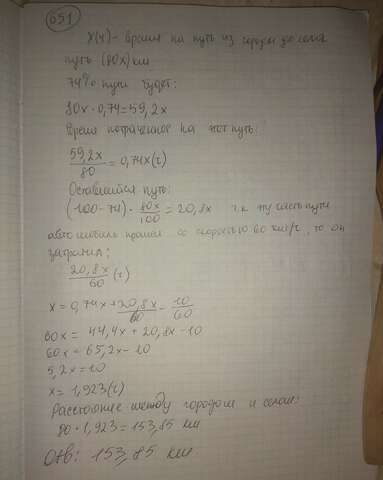 651
x(ч) - время на путь из города до села
путь (80x) км
74% пути будет:
80x · 0,74 = 59,2x
Время потраченное на этот путь:
59,2x/80 = 0,74x(ч)
Оставшийся путь:
(100-74) · 80x/100 = 20,8x т.к эту часть пути
автомобиль прошел со скоростью 60 км/ч, то он
затратил:
20,8x/60 (ч)
x = 0,74x + 20,8x/60 - 10/60
60x = 44,4x + 20,8x - 10
60x = 65,2x - 10
5,2x = 10
x = 1,923(ч)
Расстояние между городом и селом:
80 · 1,923 = 153,85 км
Отв: 153,85 км